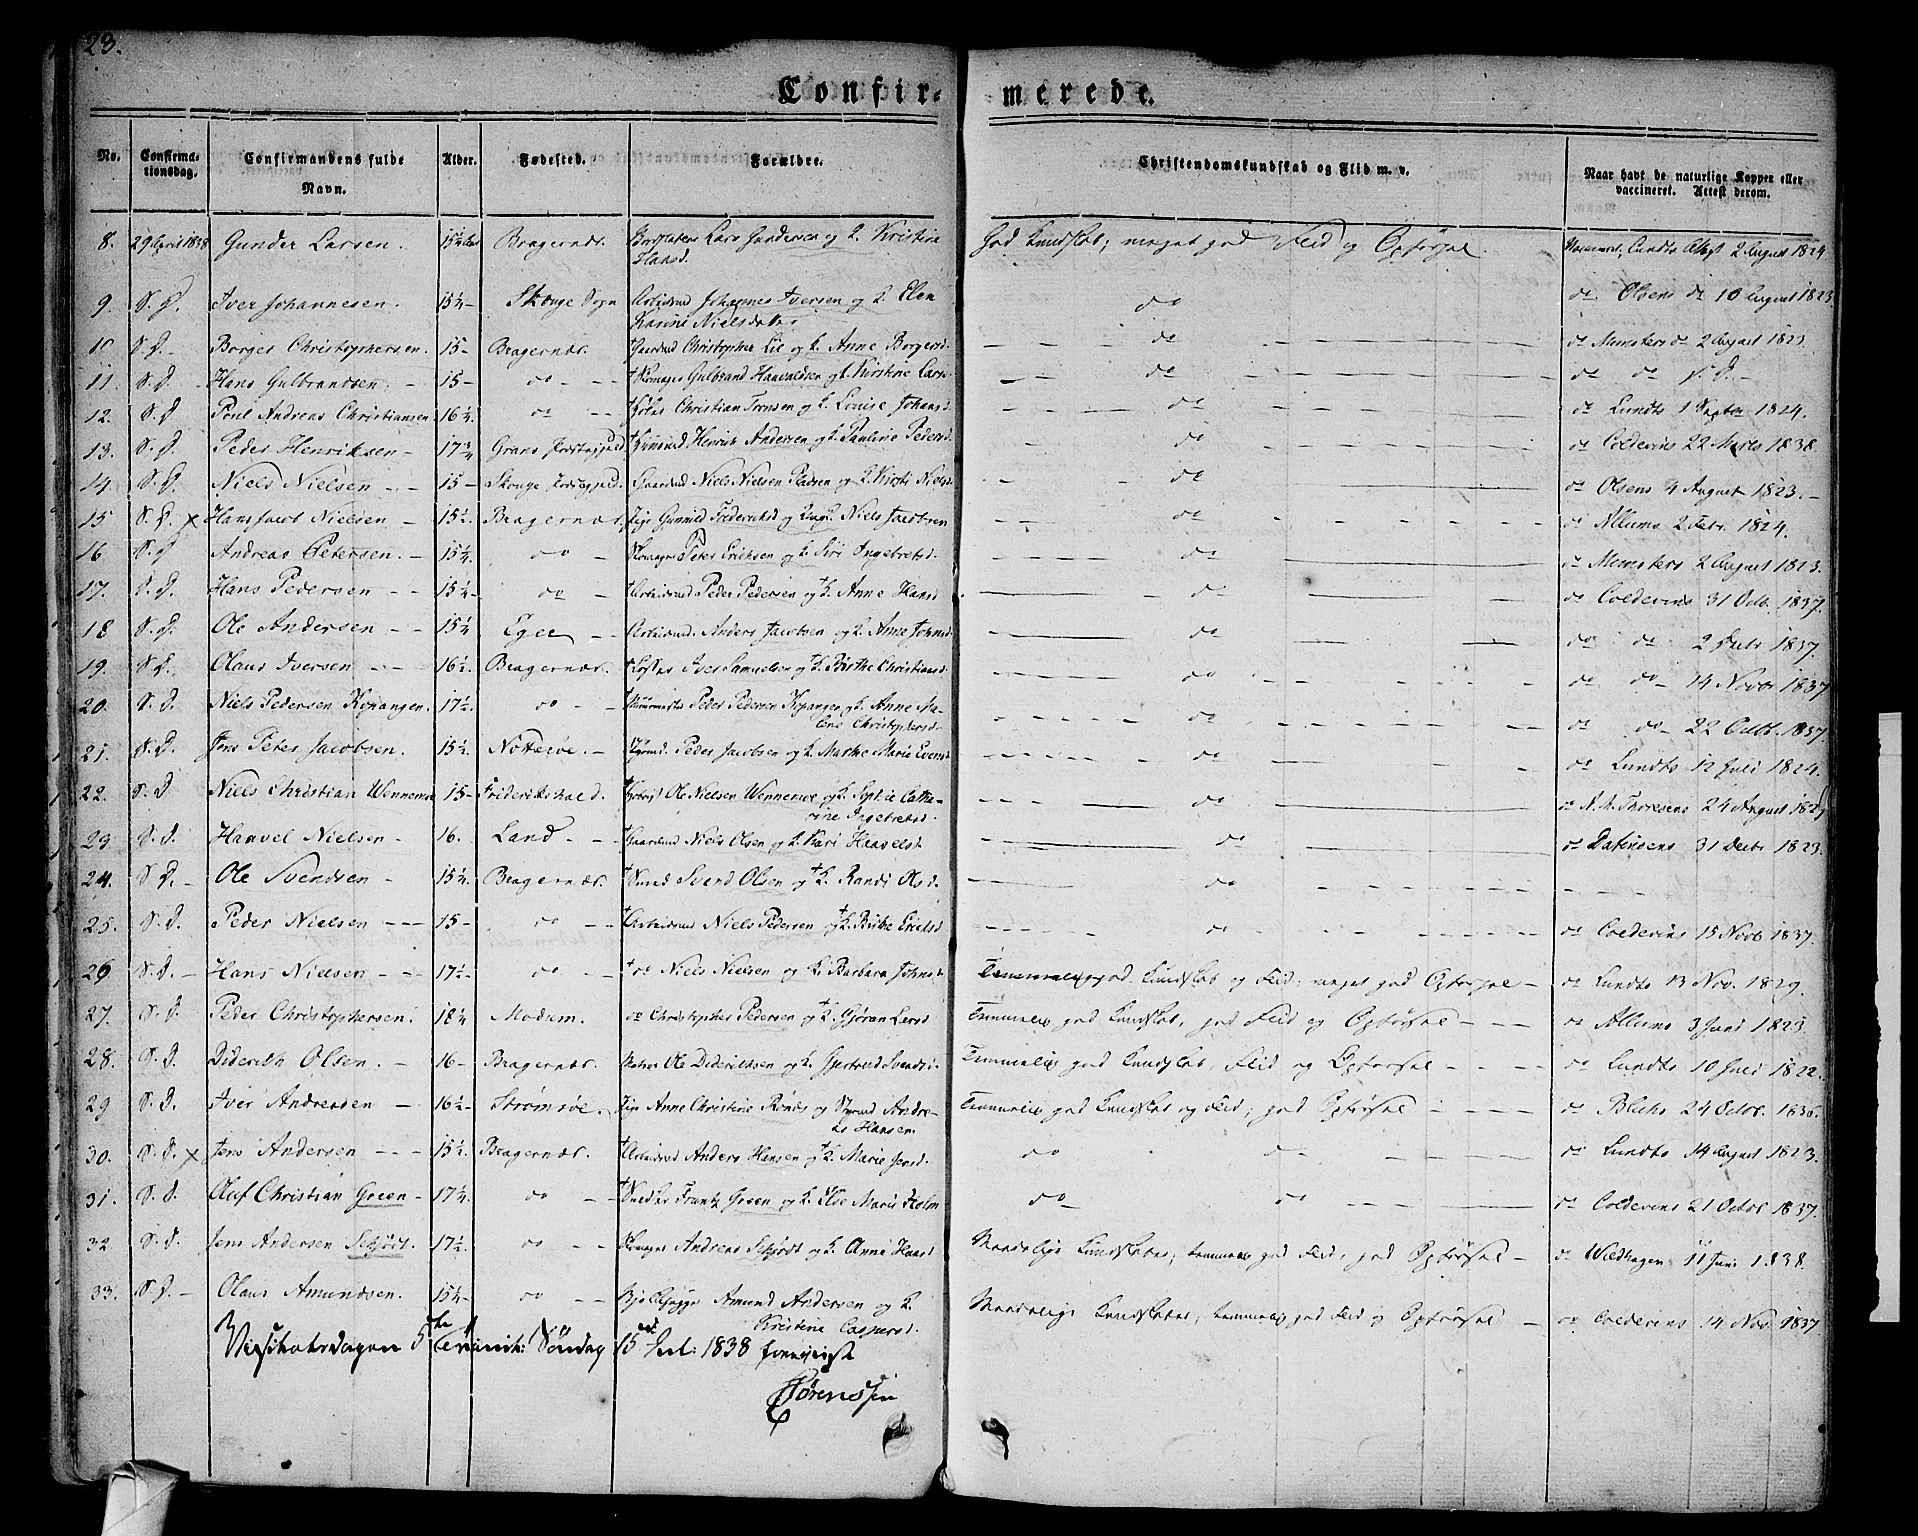 23.
Confir- merede.
No. Confirmationsdag. Confirmandens fulde Navn. Alder. Fødested. Forældre. Christendomskundskab og Flid m. v. Naar havt de naturlige Kopper eller vaccineret. Attest derom.
8. 29 April 1838 Gunder Larsen. 15½ Brageræs. Lars Gundersen og K. Kristine Hansd. God Kundskab; meget god Flid og Opførsel. Lundts Attest 2 August 1824
9. S. D. Iver Johannesen. 15¼ Skouge Sogn Arbeidsmd Johannes Iversen og K. Elen Karine Nielsdatter do do Olsens do 10 August 1823
10 S. D. Borger Christophersen. 15 Bragernæs. Gaardmd Christopher Lie og K. Anne Borgersd. do do Munsters do 2 August 1823.
11. S. D. Hans Gulbrandsen. 15 do †Skomager Gulbrand Haavaldsen og K. Kirstine Larsd do do do S. D.
12. S. D. Poul Andreas Christiansen 16¼ do Christian Tronsen og K. Louise Johansd. do do Lundts 1 Septbr 1824.
13. S. D. Peder Henriksen 17¾ Grans Præstegjeld Henrik Andersen og K. Pauline Pedersd. do do Coldevins 22 Marts 1838.
14. S. D. Niels Nielsen 15 Skouge Præstegjeld. Gaardmd Niels Nielsen Pladsen og K. Kirsti Nielsd. do do Olsens 4 August 1823.
15 S. D. × Hans Jacob Nielsen 15½ Bragernæs. Pige Gunnild Frederiksd og Ungk. Niels Jacobsen do do Allums 2 Febr. 1824.
16. S. D. Andreas Petersen. 15¼ do Skomager Peter Eriksen og K. Siri Ingebretsd. do do Munsters 2 August 1823.
17. S. D. Hans Pedersen 15¼ do †Arbeidsmd Peder Pedersen og †K. Anne Hansd do do Coldevins 31 Octb. 1837.
18 S. D. Ole Andersen 15¼ Eger Arbeidsmd. Anders Jacobsen og K. Anne Johnsd. do do do 2 Febr 1837.
19. S. D. Olaus Iversen 16½ Bragernæs. †Losser Iver Samuelsen og †K. Birthe Christiansd. do do do 14 Novbr 1837
20. S. D. Niels Pedersen Kopangen. 17½ do †Muurmester Peder Pedersen Kopangen og K. Anne Malene Christophersd. do do do 22 Octbr. 1837.
21. S. D. Jens Peter Jacobsen. 15½ Nøtterøe. Peder Jacobsen og K. Marthe Marie Evensd do do Lundts 12 Juli 1824.
22. S. D. Niels Christian Wennemoe 15 Frederikshald. Ole Nielsen Wennemoe og K. Sophie Catharine Ingebretsd. do do A. M. Thoresens 24 August 1825
23. S. D. Haavel Nielsen 16. Land †Gaardmd Niels Olsen og K. Kari Haavelsd. do do 31 Decbr 1823.
24. S. D. Ole Svendsen 15¼ Bragernæs. Svend Olsen og †K. Randi Olsd. do
25. S. D. Peder Nielsen 15 do †Arbeidsmd Niels Pedersen †K. Birthe Eriksd do do Coldevins 15 Novb. 1837.
26 S. D. Hans Nielsen 17½ do †do Niels Nielsen og K. Barbara Johnsd. Temmelig god Kundskab og Flid, meget god Opførsel do Lundts 13 Nov. 1829.
27. S. D. Peder Christophersen. 18¼ Modum. do Christopher Pedersen og †K. Gjøran Larsd Temmelig god Kundskab, god Flid og Opførsel do Allums 3 Juni 1823.
28. S. D. Diderich Olsen. 16 Bragernæs. Ole Dideriksen og K. Gjertrud Svendsd. Temmelig god Kundskab, Flid og Opførsel do Lundts 10 Juli 1822.
29 S. D. Iver Andreasen 16½ Strømsøe. Pige Anne Christine Rönds og Andreas Hansen. Temmelig god Kundskab og Flid, god Opførsel do Blichs 24 Octbr. 1836.
30. S. D. × Jens Andersen 15½ Bragernæs. †Arbeidsmd Anders Hansen og †K. Marie Jensd. do do do Lundts 14 August 1823.
31. S. D. Oluf Christian Green 17¼ do †Snedker Frantz Green og K. Else Marie Holm do do do Coldevins 21 Octbr 1837.
32 S. D. Jens Andersen Schjødt. 17½ do Skomager Andreas Schjødt og K. Anne Hansd Maadelige Kundskaber, temmelig god Flid, god Opførsel do Wildhagen 11 Juni 1838.
33. S. D. Olaus Amundsen. 15¼ do Amund Andersen og K. Kristine Caspersd. Maadelige Kundskaber, temmelig god Flid og Opførsel do Coldevins 14 Nov. 1837.
5te Trinit: Søndag 15de Jul: 1838
Sørenssen